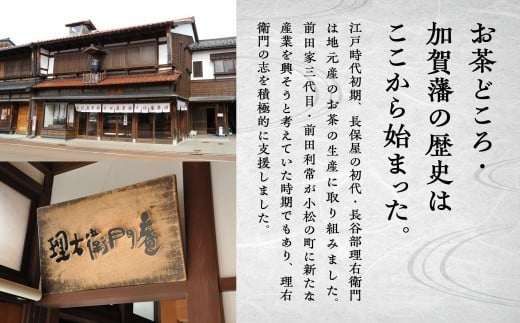 お茶どころ・
加賀藩の歴史は
ここから始まった。
江戸時代初期、長保屋の初代・長谷部理右衛門
は地元産のお茶の生産に取り組みました。
前田家三代目・前田利常が小松の町に新たな
産業を興そうと考えていた時期でもあり、理右
衛門の志を積極的に支援しました。
理右衛門の庵